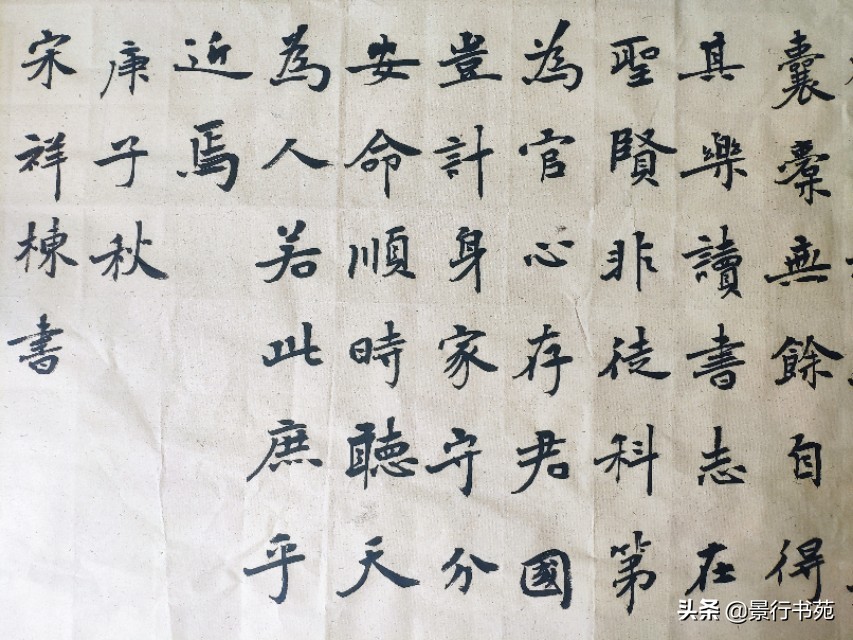 囊橐無餘自得
其樂讀書志在
聖賢非徒科第
為官心存君國
豈計身家守分
安命順時聽天
為人若此庶乎
近焉
庚子秋
宋祥棟書
头条 @景行书苑